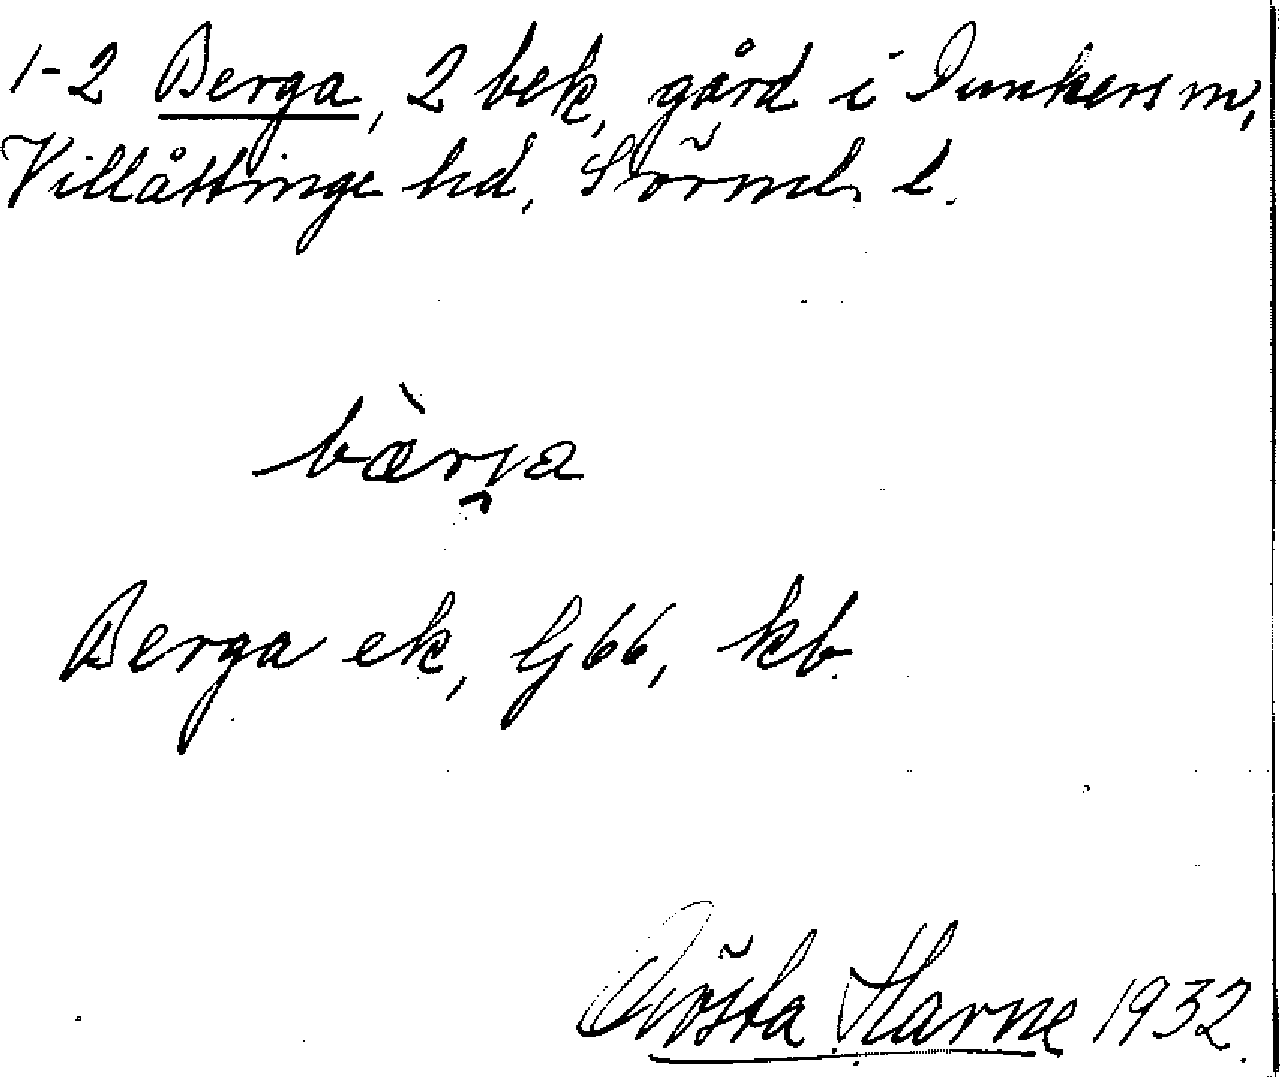 1-2 Berga, 2 bek, gård i Dunkers sn,
Villåttinge hd, Sörml. l.
bæ̀rja
Berga ek, G66, kb.
Gösta Harne 1932.